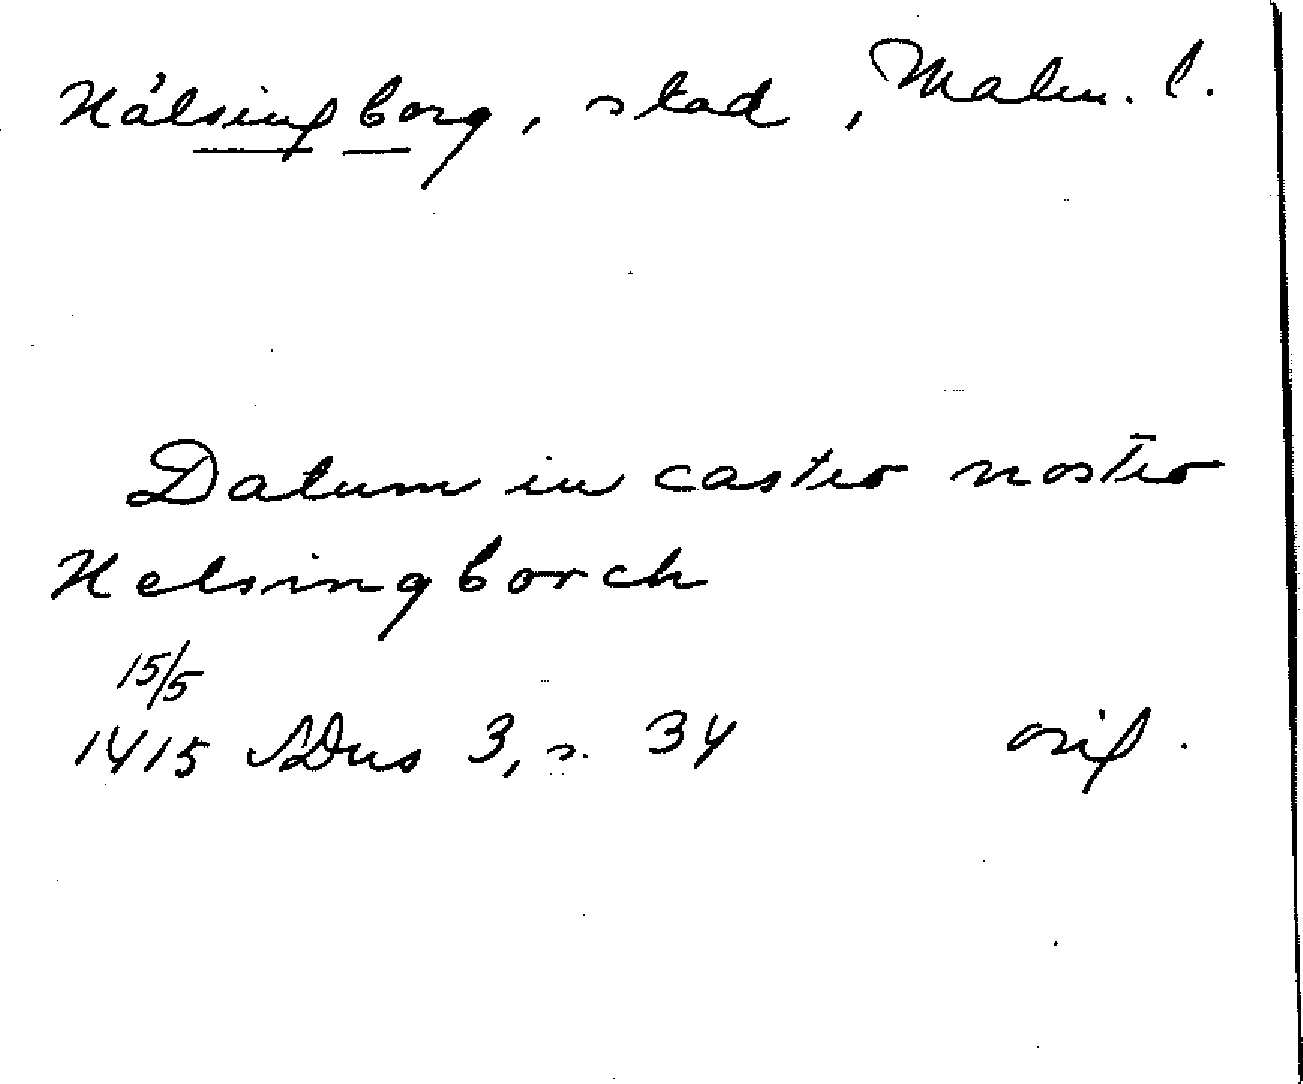 Hälsingborg, stad, Malm. l.
Datum in castro nostro
Helsingborch
15/5
1415 SDns 3, s. 34 orig.